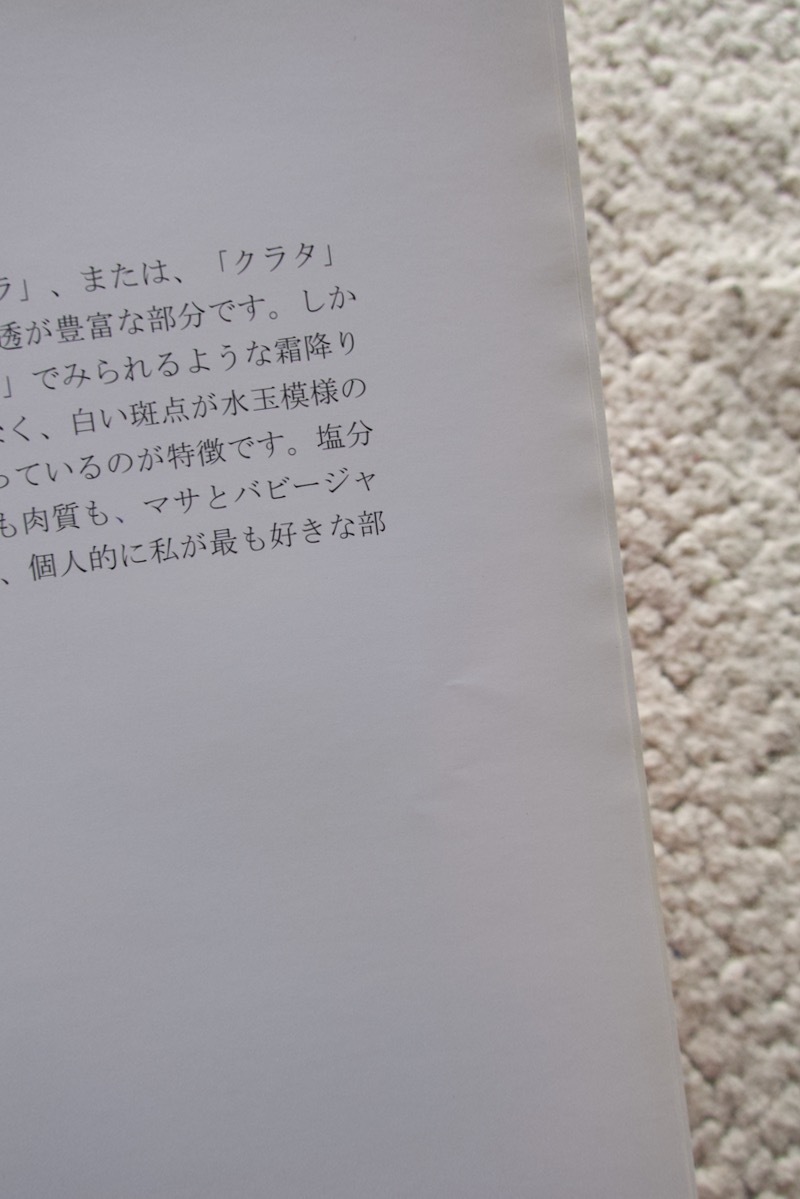 ラ」、または、「クラタ」
透が豊富な部分です。しか
」でみられるような霜降り
なく、白い斑点が水玉模様の
っているのが特徴です。塩分
も肉質も、マサとバビージャ
、個人的に私が最も好きな部